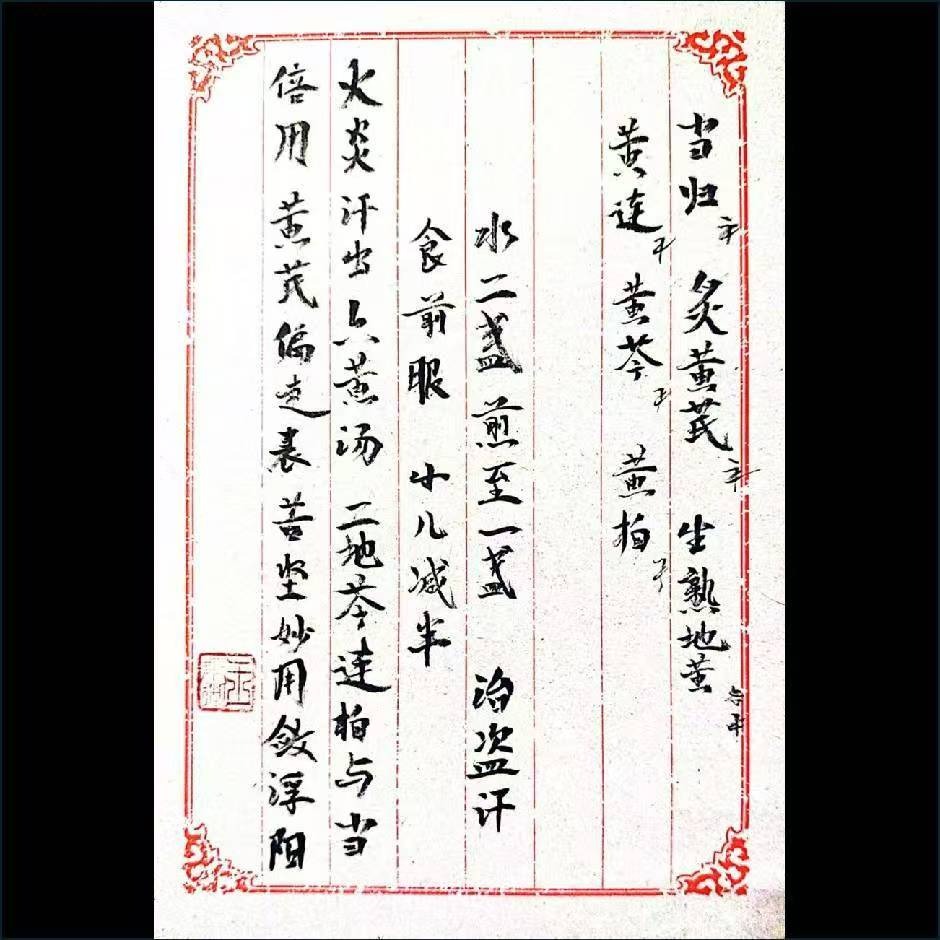 当归 炙黄芪 生熟地黄 各
黄连 黄芩 黄柏
水二盏 煎至一盏 治盗汗
食前服 小儿减半
火炎汗出六黄汤 二地芩连柏与当
倍用黄芪偏走表 苦坚妙用敛浮阳